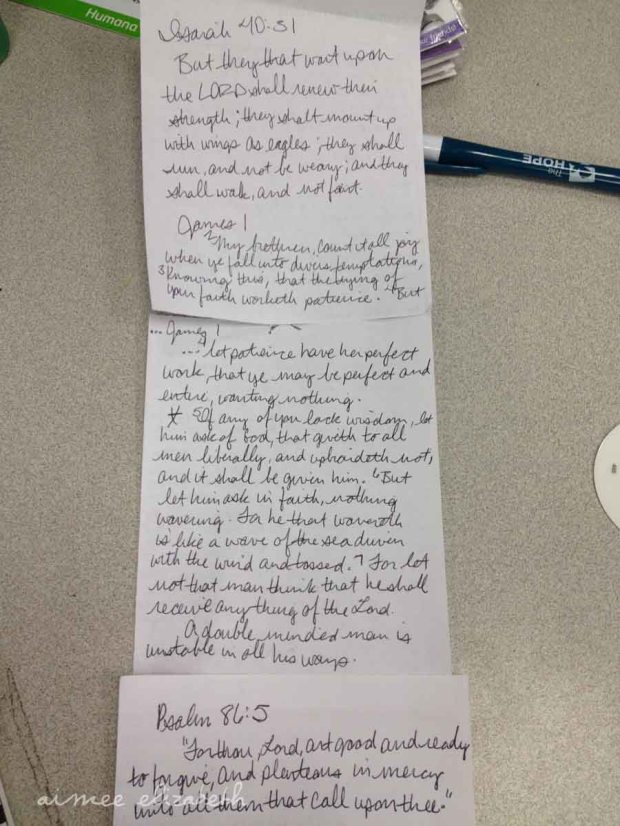 Humana
Isaiah 40:31
But they that wait upon
the LORD shall renew their
strength; they shall mount up
with wings as eagles; they shall
run, and not be weary; and they
shall walk, and not faint.
James 1
2 My brethren, count it all joy
when ye fall into divers temptations,
3 Knowing this, that the trying of
your faith worketh patience. 4 But
... James 1
...4 let patience have her perfect
work, that ye may be perfect and
entire, wanting nothing.
* 5 If any of you lack wisdom, let
him ask of God, that giveth to all
men liberally, and upbraideth not,
and it shall be given him. 6 But
let him ask in faith, nothing
wavering. For he that wavereth
is like a wave of the sea driven
with the wind and tossed. 7 For let
not that man think that he shall
receive any thing of the Lord.
A double minded man is
unstable in all his ways.
Psalm 86:5
"For thou, Lord, art good and ready
to forgive, and plenteous in mercy
unto all them that call upon thee."
The HOPE
aimee elizabeth